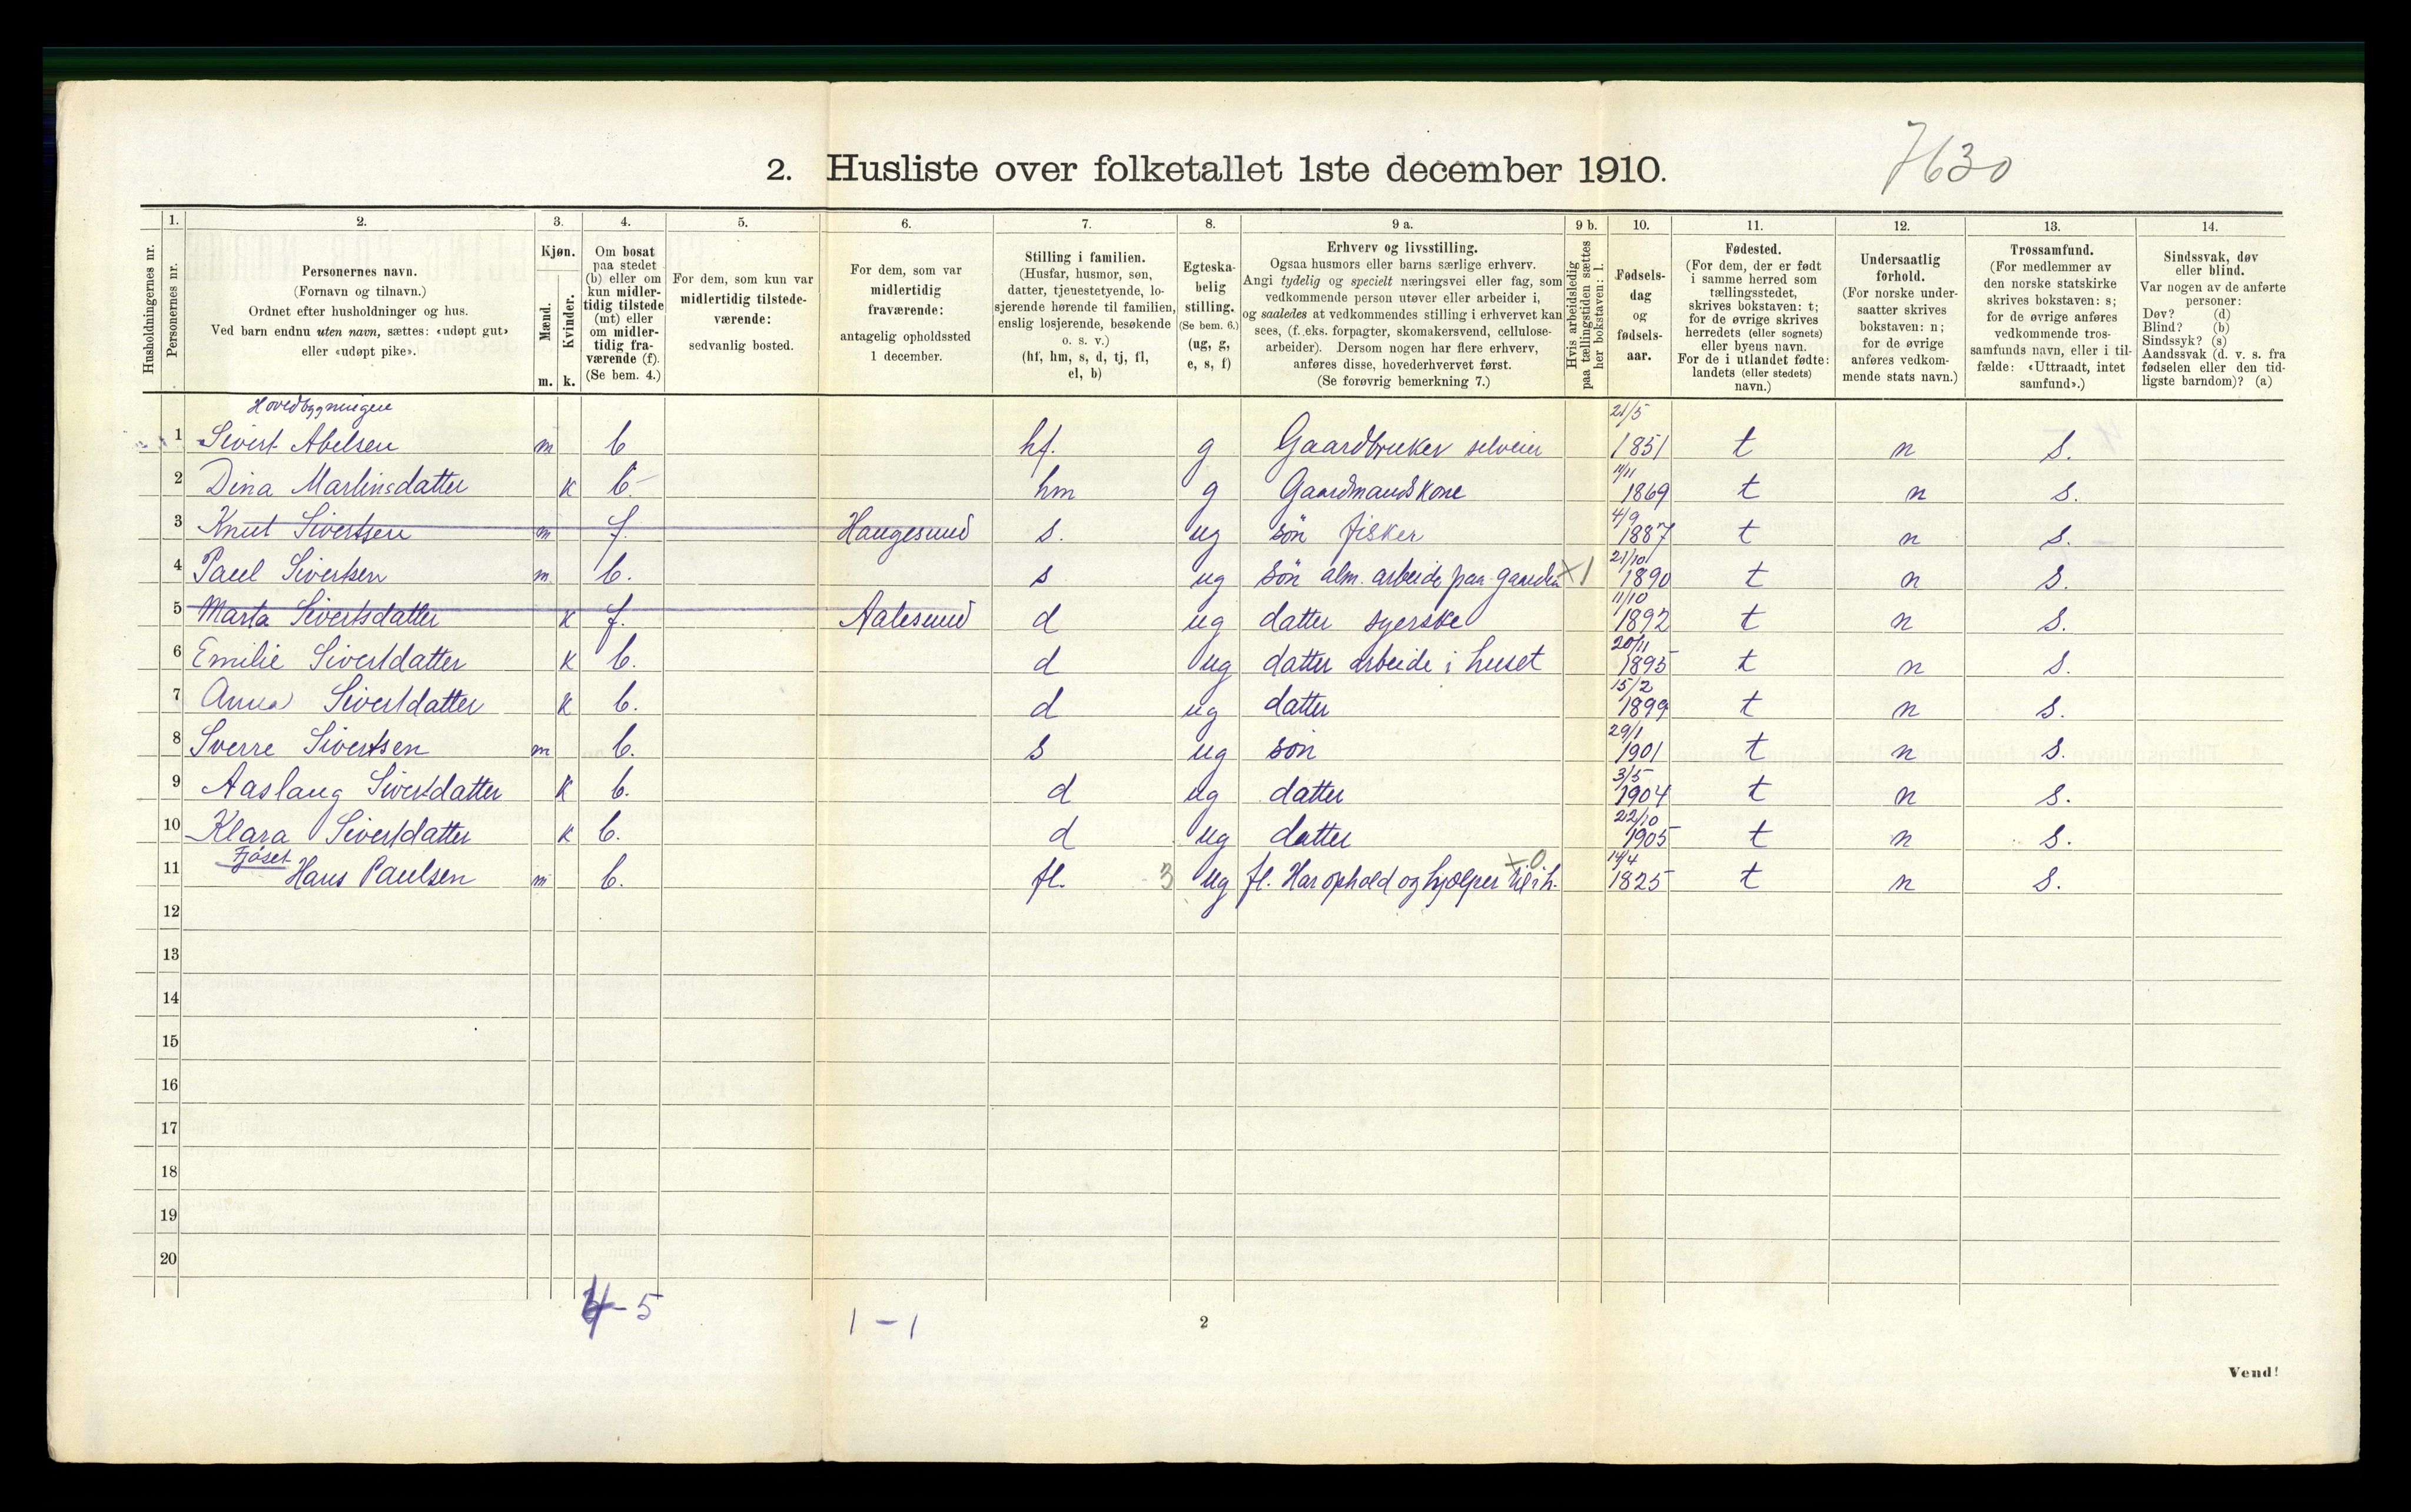 7630
2. Husliste over folketallet 1ste december 1910.
Husholdningernes nr.
1.
Personernes nr.
2.
Personernes navn.
(Fornavn og tilnavn.)
Ordnet efter husholdninger og hus.
Ved barn endnu uten navn, sættes: «udøpt gut»
eller «udøpt pike».
3.
Kjøn.
Mænd.
Kvinder.
m. k.
4.
Om bosat
paa stedet
(b) eller om
kun midler-
tidig tilstede
(mt) eller
om midler-
tidig fra-
værende (f).
(Se bem. 4.)
5.
For dem, som kun var
midlertidig tilstede-
værende:
sedvanlig bosted.
6.
For dem, som var
midlertidig
fraværende:
antagelig opholdssted
1 december.
7.
Stilling i familien.
(Husfar, husmor, søn,
datter, tjenestetyende, lo-
sjerende hørende til familien,
enslig losjerende, besøkende
o. s. v.)
(hf, hm, s, d, tj, fl,
el, b)
8.
Egteska-
belig
stilling.
(Se bem. 6.)
(ug, g,
e, s, f)
9 a.
Erhverv og livsstilling.
Ogsaa husmors eller barns særlige erhverv.
Angi tydelig og specielt næringsvei eller fag, som
vedkommende person utøver eller arbeider i,
og saaledes at vedkommendes stilling i erhvervet kan
sees, (f. eks. forpagter, skomakersvend, cellulose-
arbeider). Dersom nogen har flere erhverv,
anføres disse, hovederhvervet først.
(Se forøvrig bemerkning 7.)
9 b.
Hvis arbeidsledig
paa tællingstiden sættes
her bokstaven: l.
10.
Fødsels-
dag
og
fødsels-
aar.
11.
Fødested.
(For dem, der er født
i samme herred som
tællingsstedet,
skrives bokstaven: t;
for de øvrige skrives
herredets (eller sognets)
eller byens navn.
For de i utlandet fødte:
landets (eller stedets)
navn.)
12.
Undersaatlig
forhold.
(For norske under-
saatter skrives
bokstaven: n;
for de øvrige
anføres vedkom-
mende stats navn.)
13.
Trossamfund.
(For medlemmer av
den norske statskirke
skrives bokstaven: s;
for de øvrige anføres
vedkommende tros-
samfunds navn, eller i til-
fælde: «Uttraadt, intet
samfund».)
14.
Sindssvak, døv
eller blind.
Var nogen av de anførte
personer:
Døv? (d)
Blind? (b)
Sindssyk? (s)
Aandssvak (d. v. s. fra
fødselen eller den tid-
ligste barndom)? (a)
Hovedbygningen
1 Sivert Abelsen m b hf. g Gaardbruker selveier 21/5 1851 t n s.
2 Dina Martinsdatter k b. hm g Gaardmandskone 11/11 1869 t n s.
3 Knut Sivertsen m f. Haugesund s. ug søn fisker 4/9 1887 t n s.
4 Paul Sivertsen m b. s ug søn alm. arbeide paa gaarden X1 21/10 1890 t n s.
5 Marta Sivertsdatter k f. Aalesund d ug datter syerske 11/10 1892 t n s.
6 Emilie Sivertdatter k b. d ug datter arbeide i huset 20/11 1895 t n s.
7 Anna Sivertdatter k b. d ug datter 15/2 1899 t n s.
8 Sverre Sivertsen m b. s ug søn 29/1 1901 t n s.
9 Aaslaug Sivertdatter k b. d ug datter 3/5 1904 t n s.
10 Klara Sivertdatter k b. d ug datter 22/10 1905 t n s.
Fjøset
11 Hans Paulsen m b. fl. 3 ug fl. Har ophold og hjælper til i h. X0 14/4 1825 t n s.
12
13
14
15
16
17
18
19
20
4-5
1-1
2
Vend!